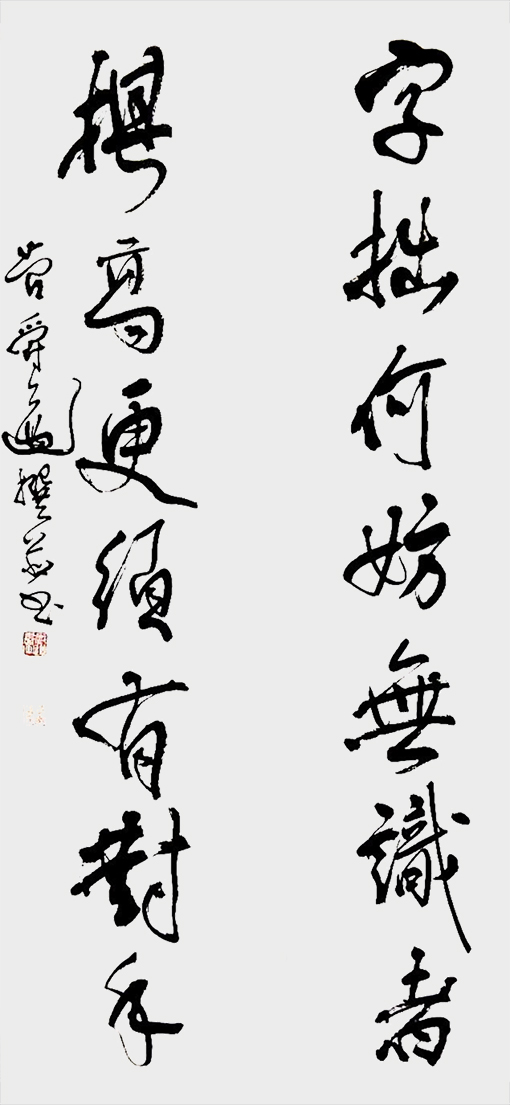 字拙何妨無識者
棋高更須有對手
撰并书